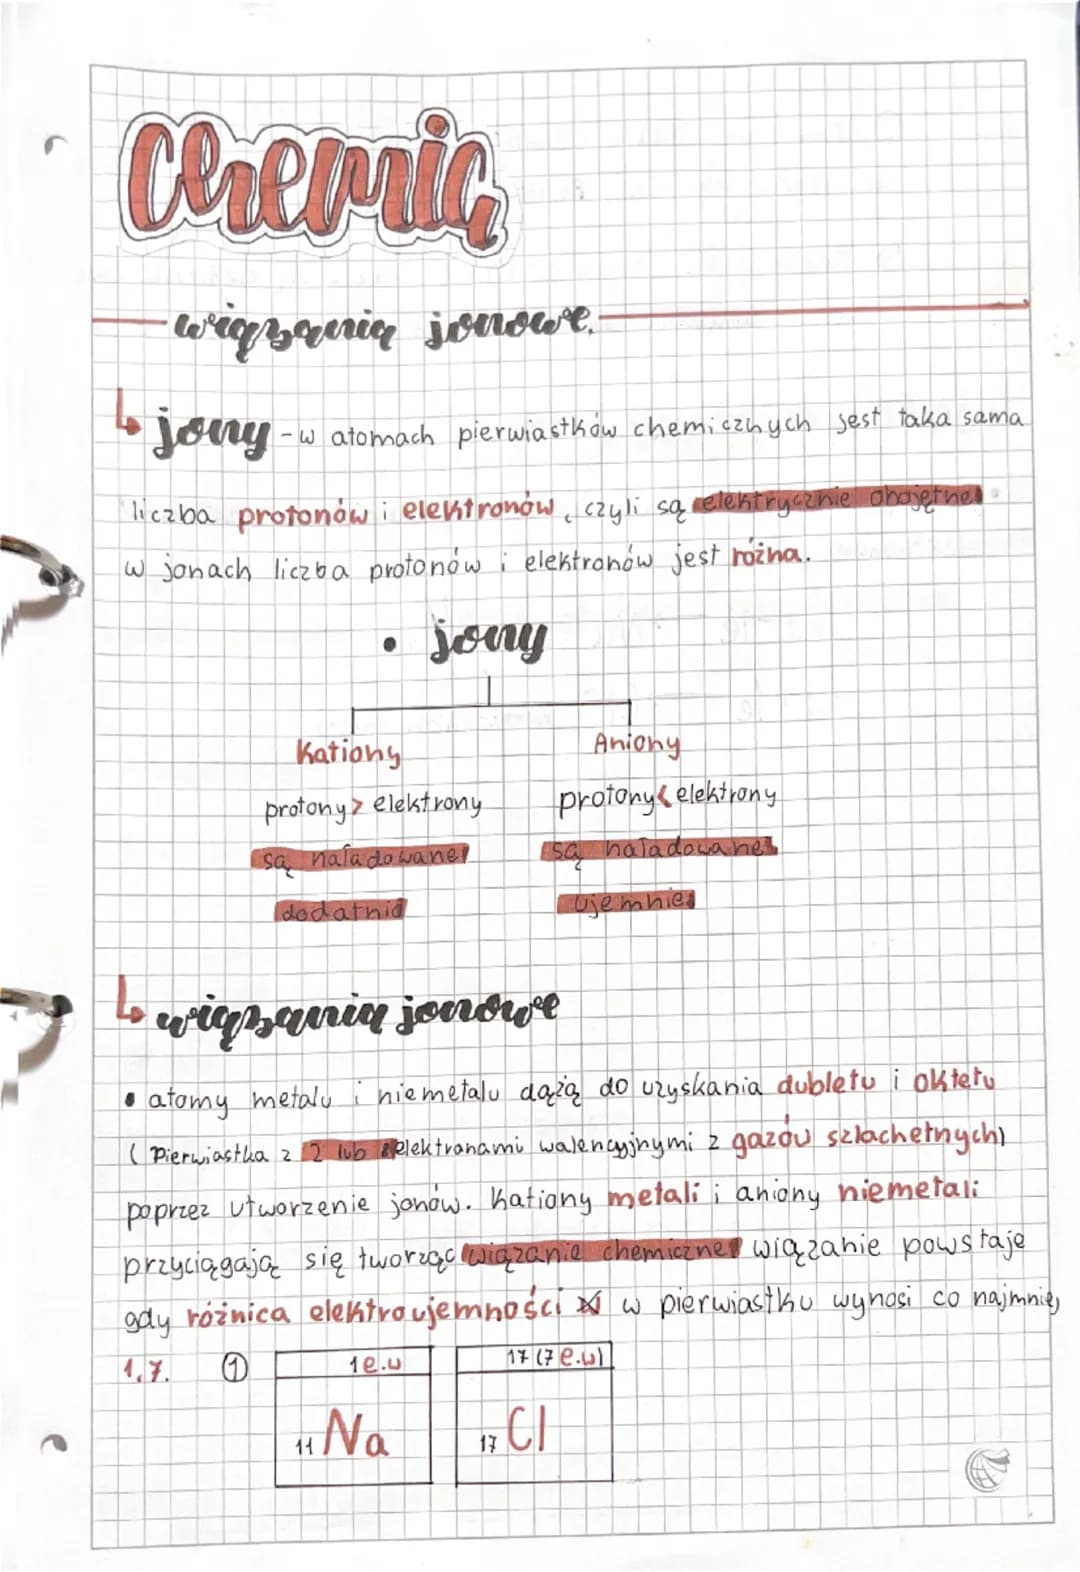 Chemia
wiązania jonowe.
jony - w atomach pierwiastków chemicznych jest taka sama
liczba protonów i elektronów, czyli są elektrycznie obojętne
w jonach liczba protonów i elektronów jest różna.
• jony
Kationy Aniony
protony > elektrony protony < elektrony
są naładowane są naładowane
dodatnio ujemnie
wiązania jonowe
• atomy metalu i niemetalu dążą do uzyskania dubletu i oktetu
(Pierwiastka z 2 lub 8 elektronami walencyjnymi z gazów szlachetnych)
poprzez utworzenie jonów. Kationy metali i aniony niemetali
przyciągają się tworząc wiązanie chemiczne wiązanie powstaje
gdy różnica elektroujemności w pierwiastku wynosi co najmniej
1,7. ① 1 e.w 17 (7 e.w)
11 Na 17 Cl